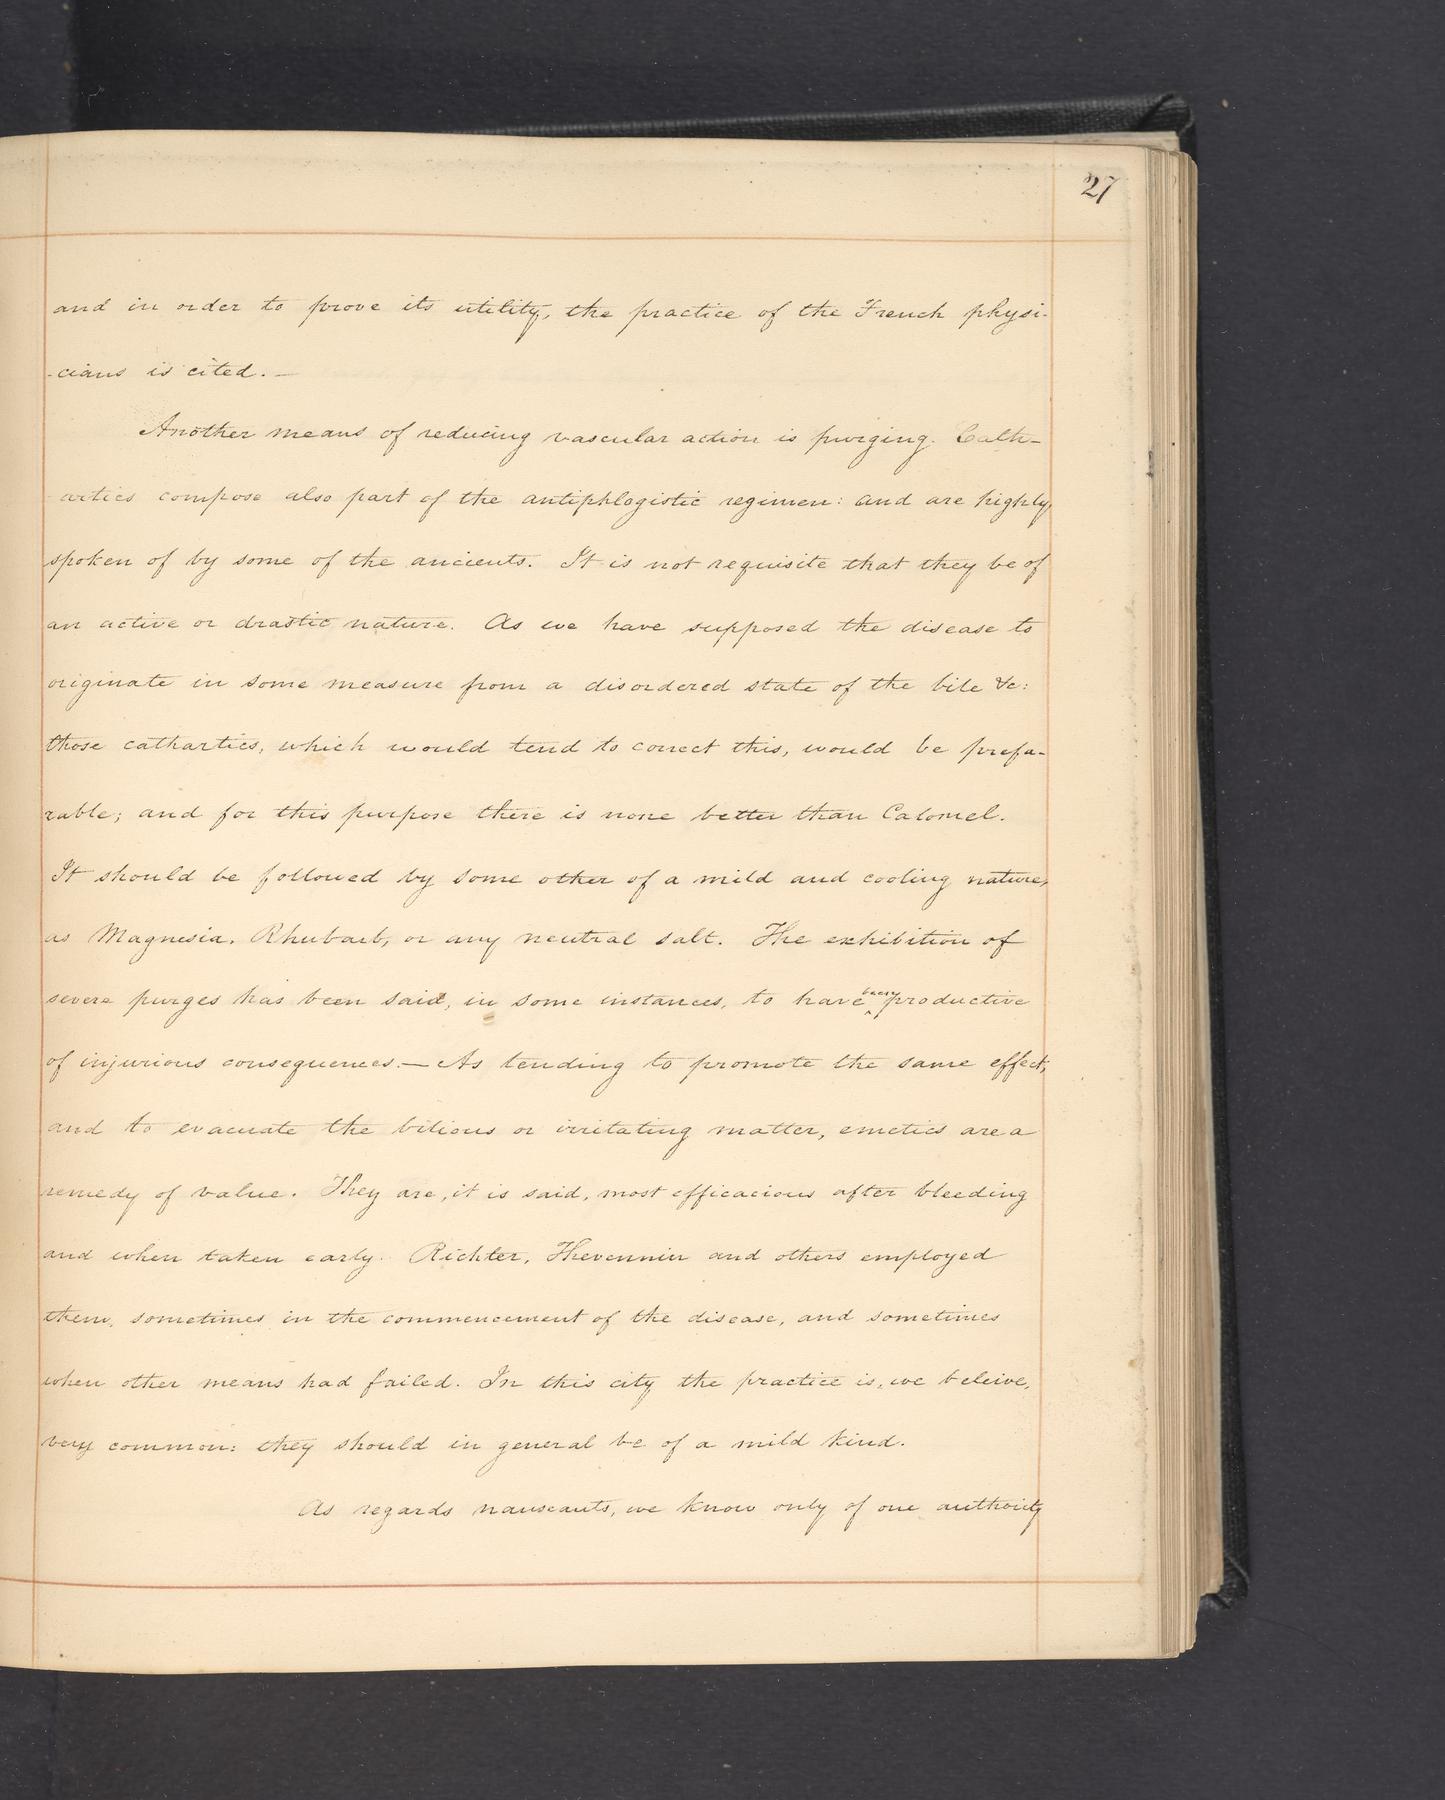 27
and in order to prove its utility, the practice of the French physi-
-cians is cited. —
Another means of reducing vascular action is purging. Cath-
-artics compose also part of the antiphlogistic regimen: and are highly
spoken of by some of the ancients. It is not requisite that they be of
an active or drastic nature. As we have supposed the disease to
originate in some measure from a disordered state of the bile &c:
those cathartics, which would tend to correct this, would be prefa-
rable; and for this purpose there is none better than Calomel.
It should be followed by some other of a mild and cooling nature,
as Magnesia, Rhubarb, or any neutral salt. The exhibition of
severe purges has been said, in some instances, to have been productive
of injurious consequences. — As tending to promote the same effect,
and to evacuate the bilious or irritating matter, emetics are a
remedy of value. They are, it is said, most efficacious after bleeding
and when taken early. Richter, Thevennin and others employed
them, sometimes in the commencement of the disease, and sometimes
when other means had failed. In this city the practice is, we beleive,
very common: they should in general be of a mild kind.
As regards nauseants, we know only of one authority